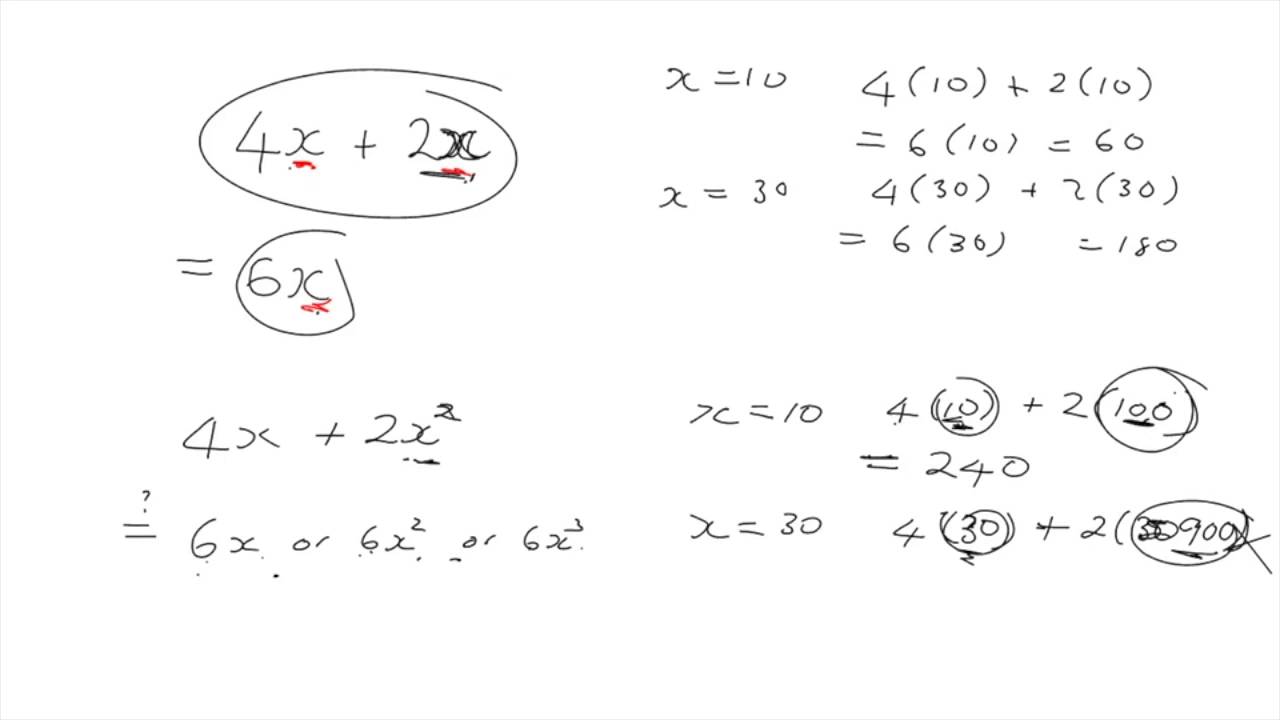 4x + 2x
= 6x
x = 10 4(10) + 2(10)
= 6(10) = 60
x = 30 4(30) + 2(30)
= 6(30) = 180
4x + 2x²
?
= 6x or 6x² or 6x³
x = 10 4(10) + 2(100)
= 240
x = 30 4(30) + 2(900)